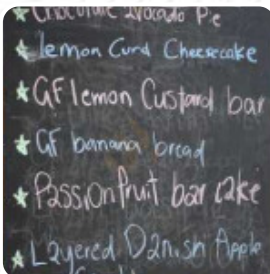 ★ Chocolate Avocado Pie
★ lemon Curd Cheesecake
★ GF lemon Custard bar
★ GF banana bread
★ Passionfruit bar cake
★ Layered Danish Apple